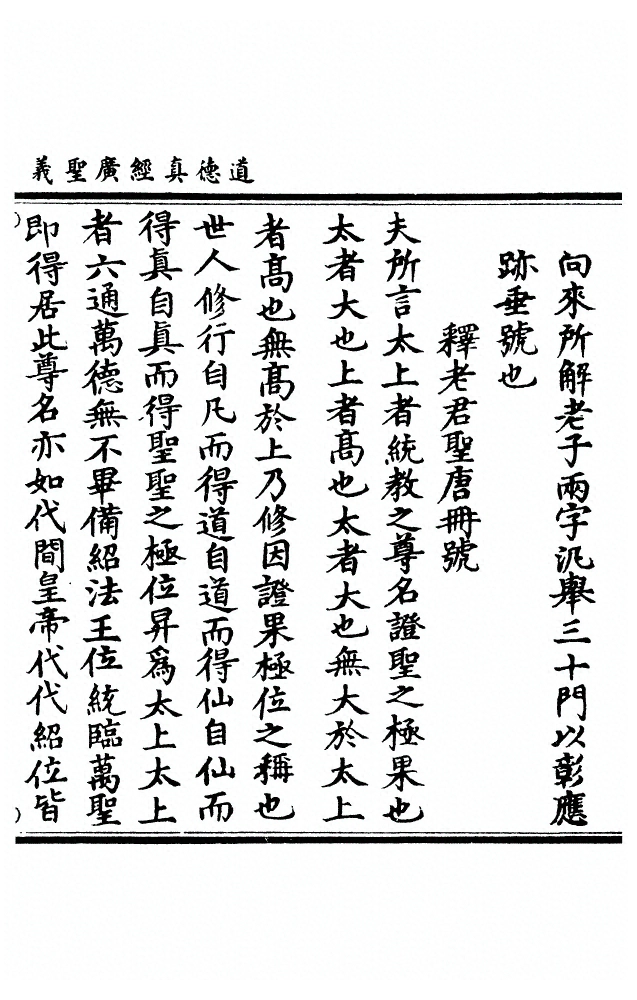 道德真經廣聖義
向來所解老子兩字汎舉三十門以彰應
跡垂號也
釋老君聖唐冊號
夫所言太上者統教之尊名證聖之極果也
太者大也上者髙也太者大也無大於太上
者髙也無髙於上乃修因證果極位之稱也
世人修行自凡而得道自道而得仙自仙而
得眞自眞而得聖聖之極位昇爲太上太上
者六通萬德無不畢備紹法王位統臨萬聖
即得居此尊名亦如代間皇帝代代紹位皆